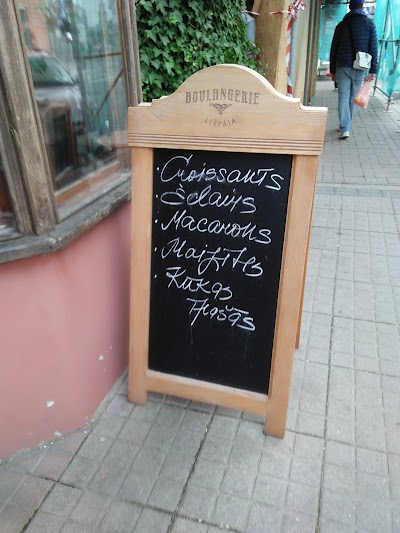 BOULANGERIE
LIEPĀJA
· Croissants
· Éclairs
· Macarons
· Maizītes
· Kūkas
Tracias